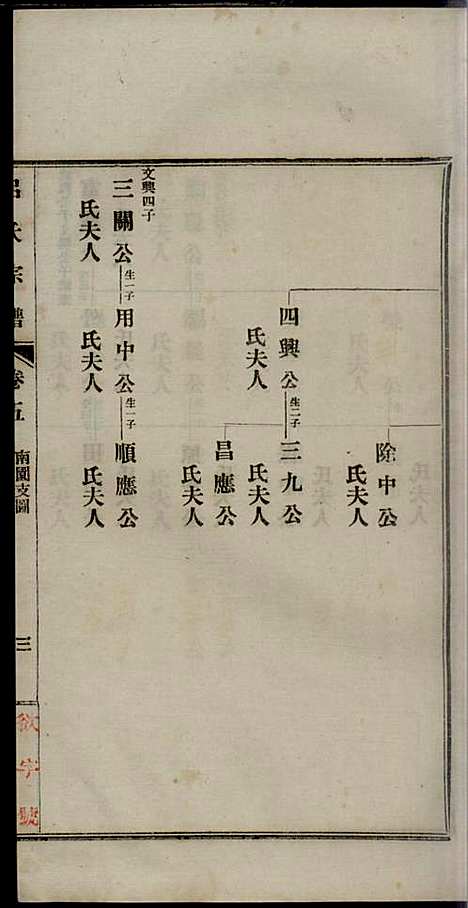 除中公
氏夫人
四興公生二子三九公
氏夫人
氏夫人
昌應公
氏夫人
文興四子
三關公生一子用中公生一子順應公
氏夫人
氏夫人
氏夫人
呂氏宗譜
卷五
南園支圖
三
字號